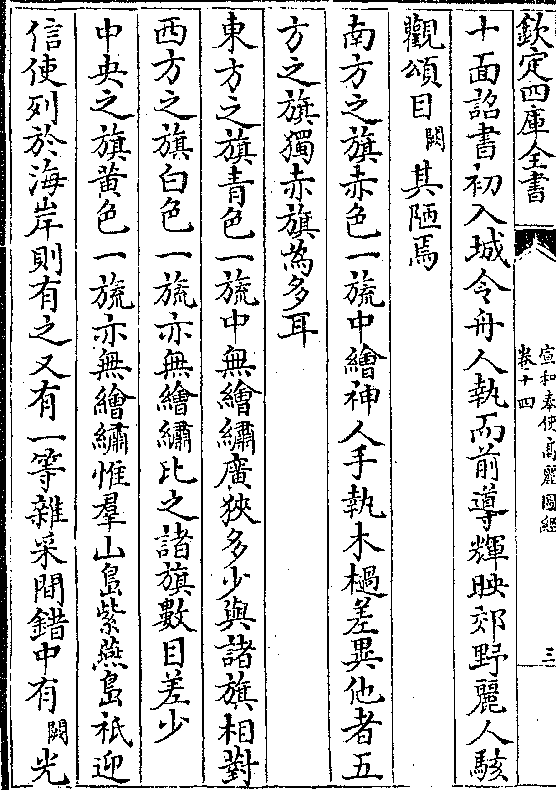 欽定四庫全書
宣和奉使高麗圖經
卷十四
三
十面詔書初入城令舟人執而前導輝映郊野麗人駭
觀頌目闕其陋焉
南方之旗赤色一旒中繪神人手執木檛差異他者五
方之旗獨赤旗為多耳
東方之旗青色一旒中無繪繡廣狹多少與諸旗相對
西方之旗白色一旒亦無繪繡比之諸旗數目差少
中央之旗黃色一旒亦無繪繡惟羣山島紫燕島祇迎
信使列於海岸則有之又有一等雜采間錯中有闕光